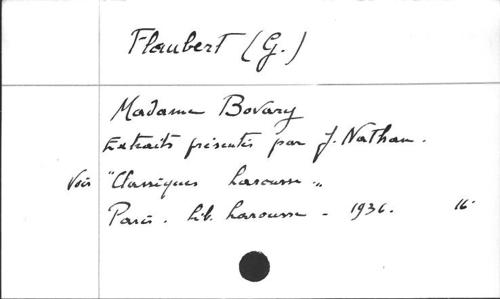 Flaubert (G.)
Madame Bovary
Extraits présentés par J. Nathan.
Voir "Classiques Larousse".
Paris. Lib. Larousse - 1936. 16°